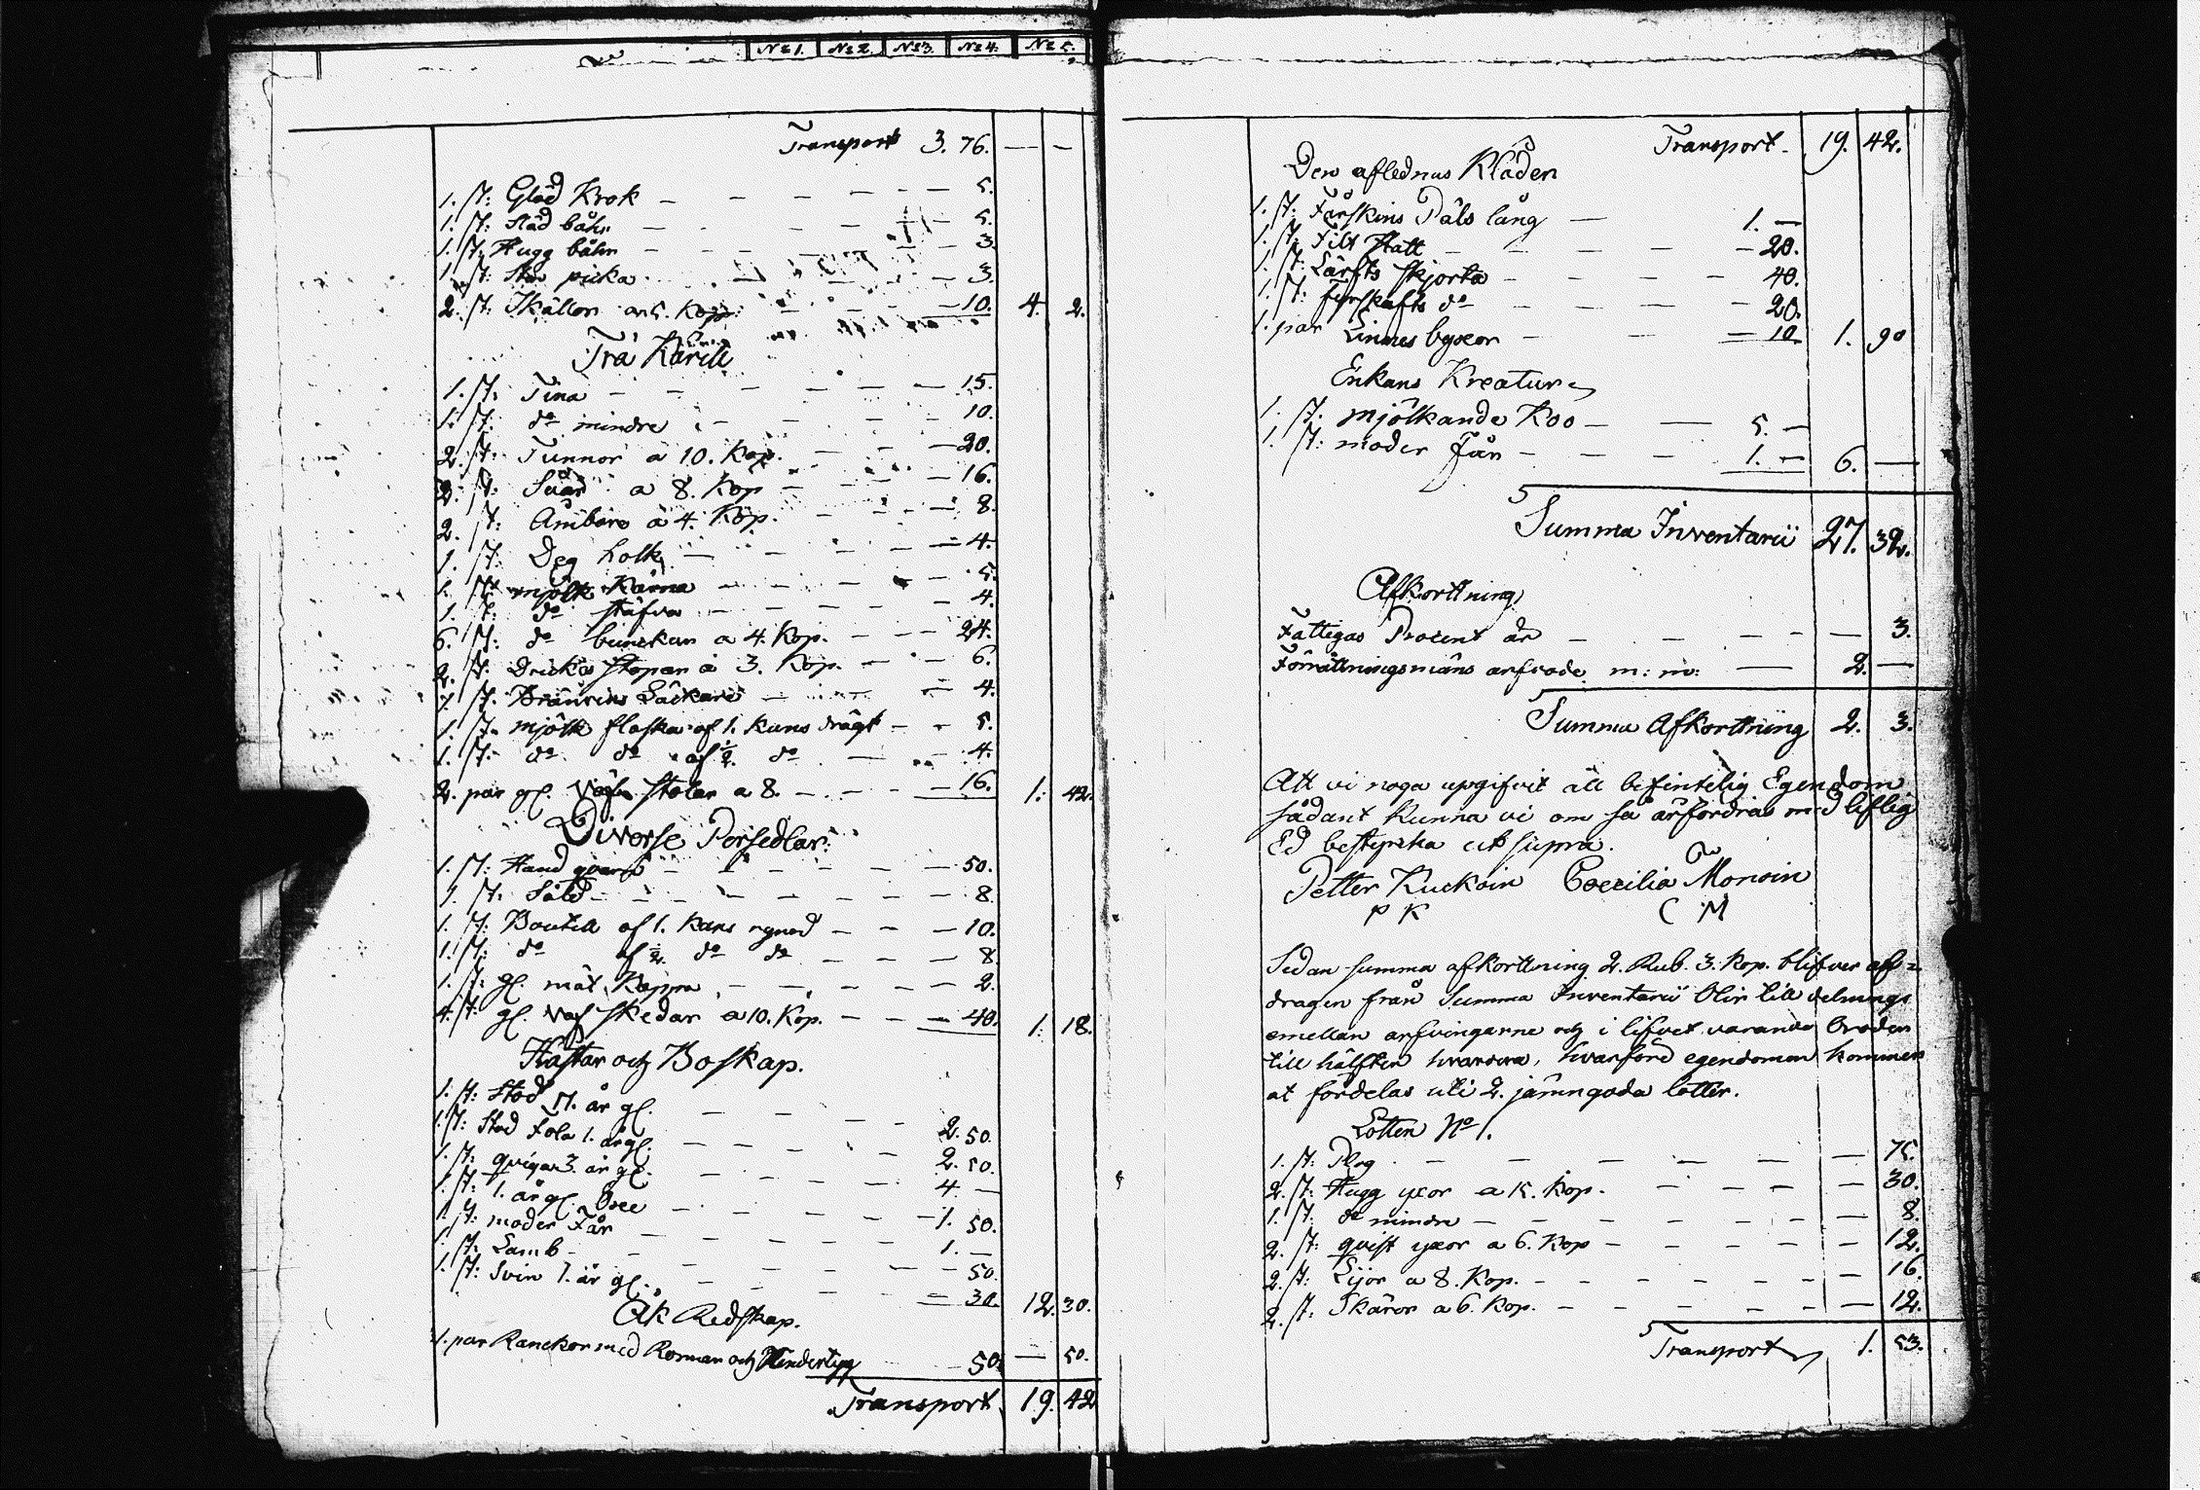 No 1. No 2. No 3. No 4. No 5.
Transport 3. 76. — —
1. st: Glöd Krok — — — 5.
1. st: Städ båhr — — — 5.
1. st: Hugg båhr — — — 3.
1. st: Stor picka — — — 3.
2. st: Skällor a 5. Kop. — — 10. 4. 2.
Trä Kärill
1. st: Tina — — — 15.
1. st: do mindre — — — 10.
2. st: Tunnor a 10. Kop. — — 20.
2. st: Såar a 8. Kop — — 16.
2. st: Ämbare a 4. Kop. — — 8.
1. st: Deg holk — — — 4.
1. st: mjölk Kärna — — — 5.
1. st: do stäfva — — — 4.
6. st: do bunckar a 4. Kop. — — 24.
2. st: Dricks stopar a 3. Kop. — — 6.
1. st: Bränvins Läckare — — 4.
1. st: mjölk flaska af 1. Kans drägt — — 5.
1. st: do do af ½ do — — 4.
2. par gl. stolar a 8. — — — 16. 1. 42.
Diverse Persedlar:
1. st: Hand qvarn — — — 50.
1. st: Såld — — — 8.
1. st: Boutell af 1. Kans rymd — — 10.
1. st: do af ½ do do — — 8.
1. st: gl. mät Kappa — — — 2.
4. st: gl. skedar a 10. Kop. — — 40. 1. 18.
Hästar och Boskap.
1. st: Stod 17. år gl. — — 2. 50.
1. st: Stod Fola 1. år gl. — — 2. 50.
1. st: qvigan 3. år gl. — — 4. —
1. st: 1. år gl. Oxe — — 1. 50.
1. st: moder Får — — 1. —
1. st: Lamb — — 50.
1. st: Svin 1. år gl. — — 30. 12. 30.
Åk Redskap.
1. par Ranckor med Rommar och 50. — 50.
Transport 19. 42
Transport. 19. 42.
Den aflednus Kläder
1. st: Fårskins Päls lång — 1. —
1. st: Filt Hatt — — 20.
1. st: Lärfts skjorta — — 40.
1. st: fyrskafts do — — 20.
1. par Linnes byxor — — 10. 1. 90
Enkans Kreatur
1. st: mjölkande Koo — — 5. —
1. st: moder Får — — 1. — 6. —
Summa Inventarii 27. 32.
Afkorttning
Fattigas Procent är — — — 3.
Förrättningsmäns arfvode m: m: — 2. —
Summa Afkorttning 2. 3.
Att vi noga upgifvit all befintelig Egendom
sådant kunna vi om så ärfordras med liflig
Ed bestyrka ut supra.
Petter Kuckoin Coecilia Monoin
P K C M
Sedan summa afkorttning 2. Rub. 3. Kop. blifver af=
dragen från Summa Inventarii blir till delnings
emellan arfvingarne och i lifvet varande Broder
till hälften hvardera, hvarföre egendomen kommer
at fördelas uti 2. jämngoda lotter.
Lotten No 1.
1. st: Plog — — — 75.
2. st: Hugg yxor a 15. Kop. — — 30.
1. st: do mindre — — — 8.
2. st: qvist yxor a 6. Kop — — 12.
2. st: Lijor a 8. Kop. — — 16.
2. st: Skäror a 6. Kop. — — 12.
Transport 1. 53.